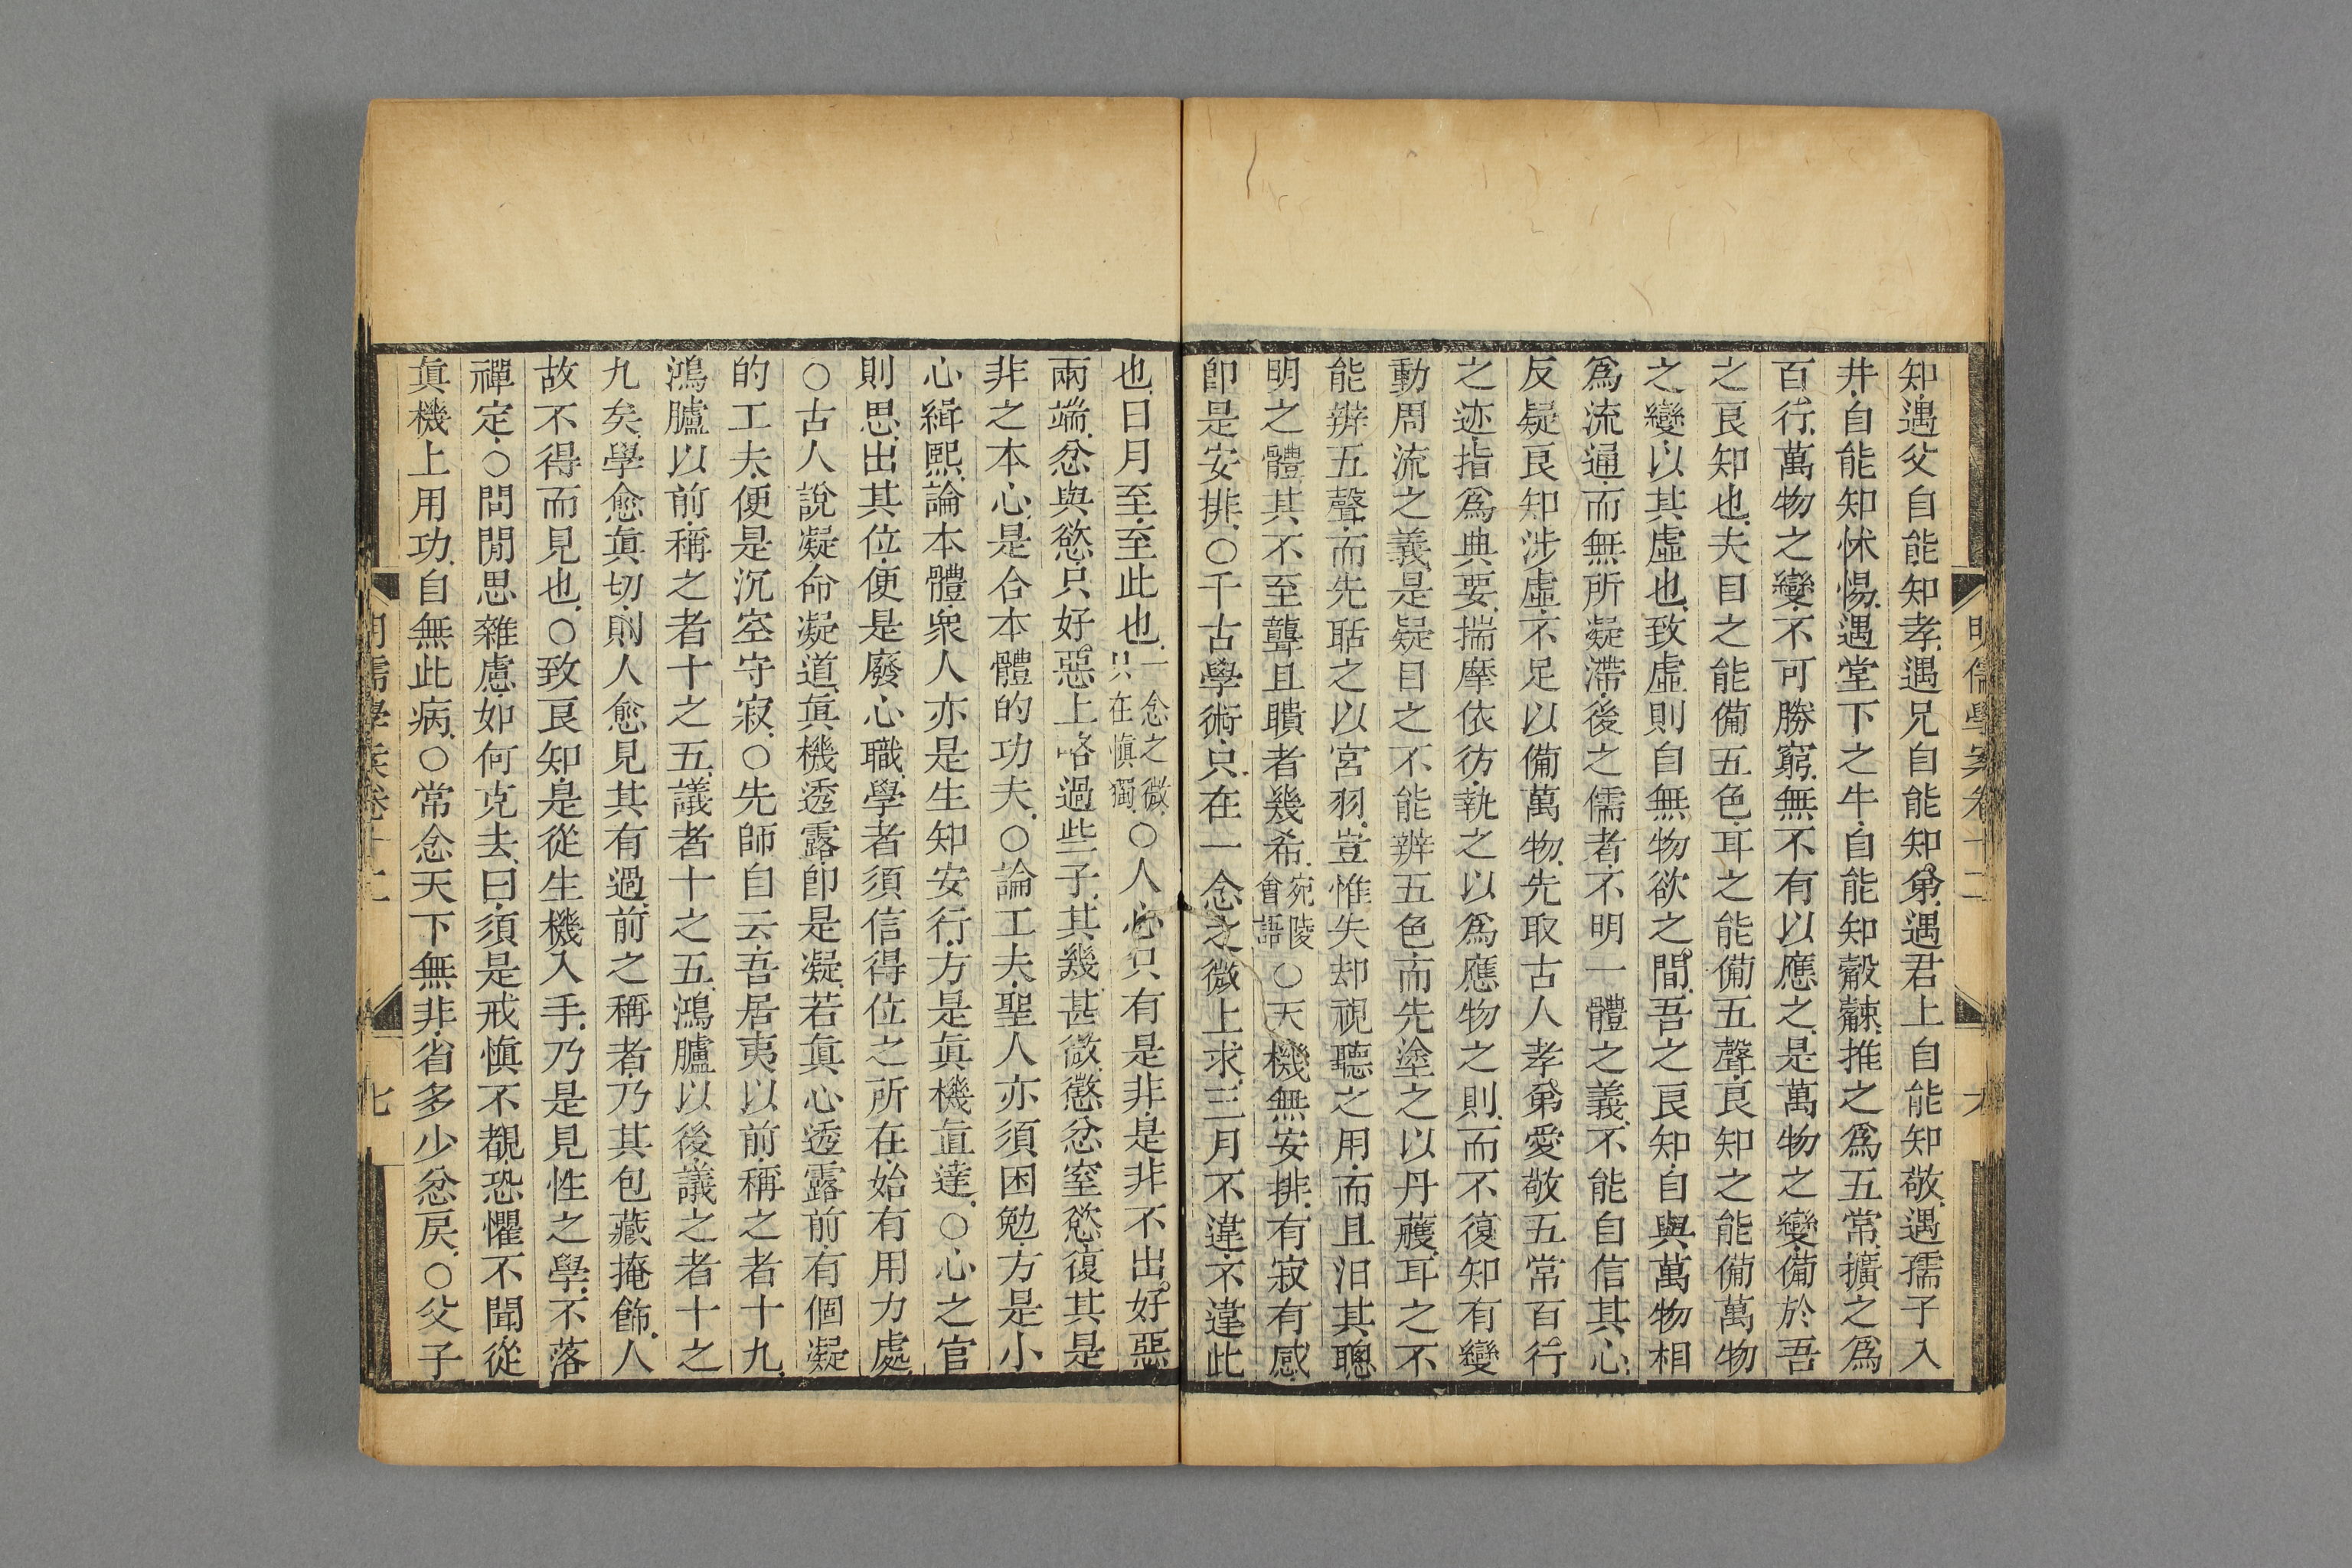 明儒學案卷十二
六
知遇父自能知孝遇兄自能知弟遇君上自能知敬遇孺子入
井自能知怵惕遇堂下之牛自能知觳觫推之爲五常擴之爲
百行萬物之變不可勝窮無不有以應之是萬物之變備於吾
之良知也夫目之能備五色耳之能備五聲良知之能備萬物
之變以其虛也致虛則自無物欲之間吾之良知自與萬物相
爲流通而無所凝滯後之儒者不明一體之義不能自信其心
反疑良知涉虛不足以備萬物先取古人孝弟愛敬五常百行
之迹指爲典要揣摩依彷執之以爲應物之則而不復知有變
動周流之義是疑目之不能辨五色而先塗之以丹雘耳之不
能辨五聲而先聒之以宮羽豈惟失却視聽之用而且汩其聰
明之體其不至聾且瞶者幾希宛陵會語○天機無安排有寂有感
卽是安排○千古學術只在一念之微上求三月不違不違此
也日月至至此也一念之微只在愼獨○人心只有是非是非不出好惡
兩端忿與慾只好惡上咯過些子其幾甚微懲忿窒慾復其是
非之本心是合本體的功夫○論工夫聖人亦須困勉方是小
心緝熙論本體衆人亦是生知安行方是眞機直達○心之官
則思出其位便是廢心職學者須信得位之所在始有用力處
○古人說凝命凝道眞機透露卽是凝若眞心透露前有個凝
的工夫便是沉空守寂○先師自云吾居夷以前稱之者十九
鴻臚以前稱之者十之五議者十之五鴻臚以後議之者十之
九矣學愈眞切則人愈見其有過前之稱者乃其包藏掩飾人
故不得而見也○致良知是從生機入手乃是見性之學不落
禪定○問閒思雜慮如何克去曰須是戒愼不覩恐懼不聞從
眞機上用功自無此病○常念天下無非省多少忿戾○父子
明儒學案卷十二
七